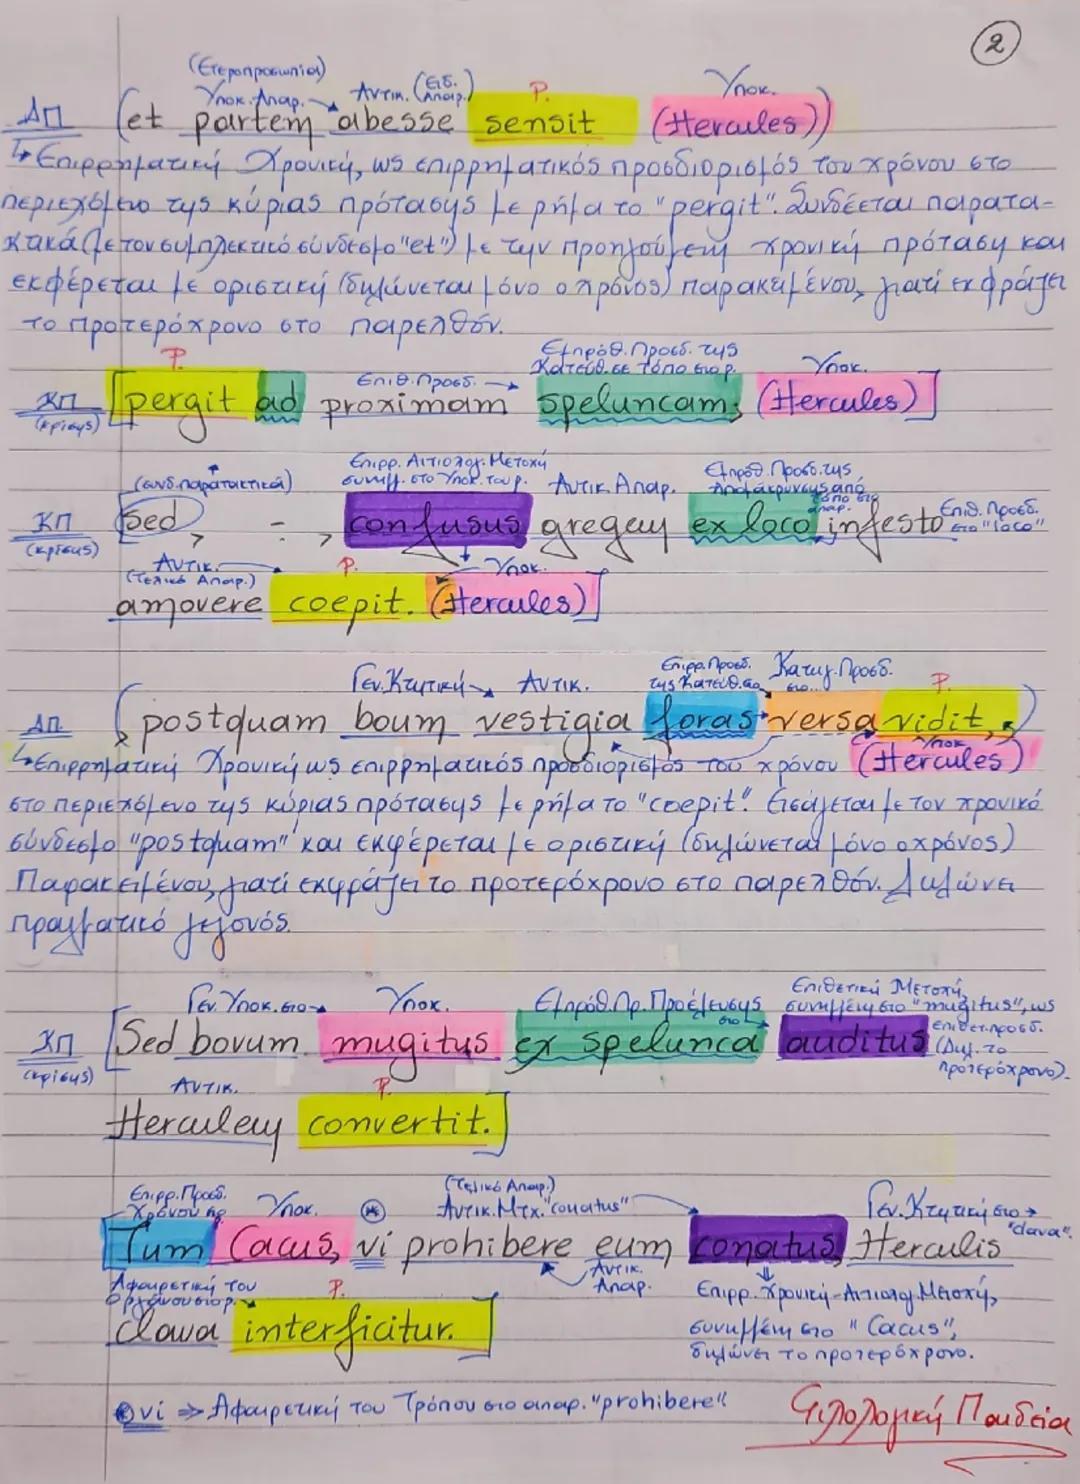 2
(Ετεροπροσωπία)
Υποκ. Απαρ. Αντικ. (Ειδ. Απαρ.) Ρ. Υποκ.
ΔΠ (et partem abesse sensit (Hercules))
↳ Επιρρηματική Χρονική, ως επιρρηματικός προσδιορισμός του χρόνου στο
περιεχόμενο της κύριας πρότασης με ρήμα το "pergit". Συνδέεται παρατα-
κτικά (με τον συμπλεκτικό σύνδεσμο "et") με την προηγούμενη χρονική πρόταση και
εκφέρεται με οριστική (δηλώνεται μόνο ο χρόνος) παρακειμένου, γιατί εκφράζει
το προτερόχρονο στο παρελθόν.
Ρ. Επιθ. Προσδ. → Εμπρόθ. Προσδ. της Κατεύθ. σε τόπο στο ρ. Υποκ.
ΚΠ (κρίσης) [pergit ad proximam speluncam; (Hercules)]
(συνδ. παρατακτικά) Επιρρ. Αιτιολογ. Μετοχή συνημ. στο Υποκ. του ρ. Αντικ. Απαρ. Εμπρόθ. Προσδ. της Απομάκρυνσης από τόπο στο απαρ.
ΚΠ (κρίσης) Sed - confusus gregem ex loco infesto Επιθ. Προσδ. στο "loco"
Αντικ. (Τελικό Απαρ.) Ρ. Υποκ.
amovere coepit. (Hercules)]
Γεν. Κτητική Αντικ. Επιρρ. Προσδ. της Κατεύθ. στο Κατηγ. Προσδ. στο.. Ρ.
ΔΠ (postquam boum vestigia foras versa vidit,)
Υποκ.
↳ Επιρρηματική Χρονική ως επιρρηματικός προσδιορισμός του χρόνου (Hercules)
στο περιεχόμενο της κύριας πρότασης με ρήμα το "coepit". Εισάγεται με τον χρονικό
σύνδεσμο "postquam" και εκφέρεται με οριστική (δηλώνεται μόνο ο χρόνος)
Παρακειμένου, γιατί εκφράζει το προτερόχρονο στο παρελθόν. Δηλώνει
πραγματικό γεγονός.
Γεν. Υποκ. στο → Υποκ. Εμπρόθ. Πρ. Προέλευσης στο Επιθετική Μετοχή, συνημμένη στο "mugitus", ως επιθετ. προσδ. (Δηλ. το προτερόχρονο).
ΚΠ (κρίσης) [Sed bovum mugitus ex spelunca auditus
Αντικ. Ρ.
Herculem convertit.]
Επιρρ. Προσδ. Χρόνου Υποκ. (Τελικό Απαρ.) Αντικ. Μτχ. "conatus" Γεν. Κτητική στο → "clava".
Tum Cacus, vi prohibere eum conatus, Herculis
Αφαιρετική του Οργάνου στο ρ. Ρ. Αντικ. Απαρ. Επιρρ. Χρονική-Αιτιολογ. Μετοχή,
clava interficitur.] συνημμένη στο "Cacus",
δηλώνει το προτερόχρονο.
vi ⇒ Αφαιρετική του Τρόπου στο απαρ. "prohibere"
Φιλολογική Παιδεία